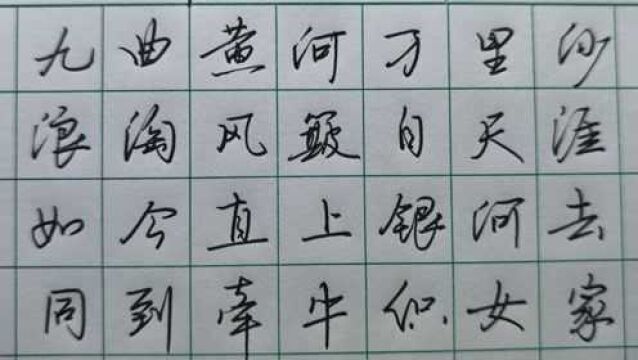 九曲黄河万里沙
浪淘风簸自天涯
如今直上银河去
同到牵牛织女家